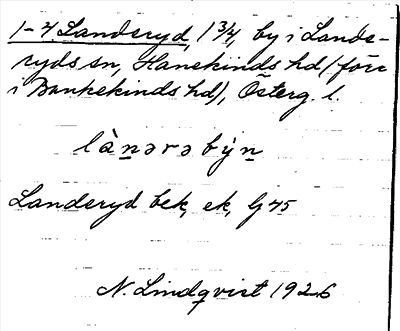 1-4 Landeryd, 1 3/4, by i Lande-
ryds sn, Hanekinds hd (förr
i Bankekinds hd), Österg. l.
là̱nərəbẏ̀n̲
Landeryd bek, ek, Lj 45
N. Lindqvist 1926